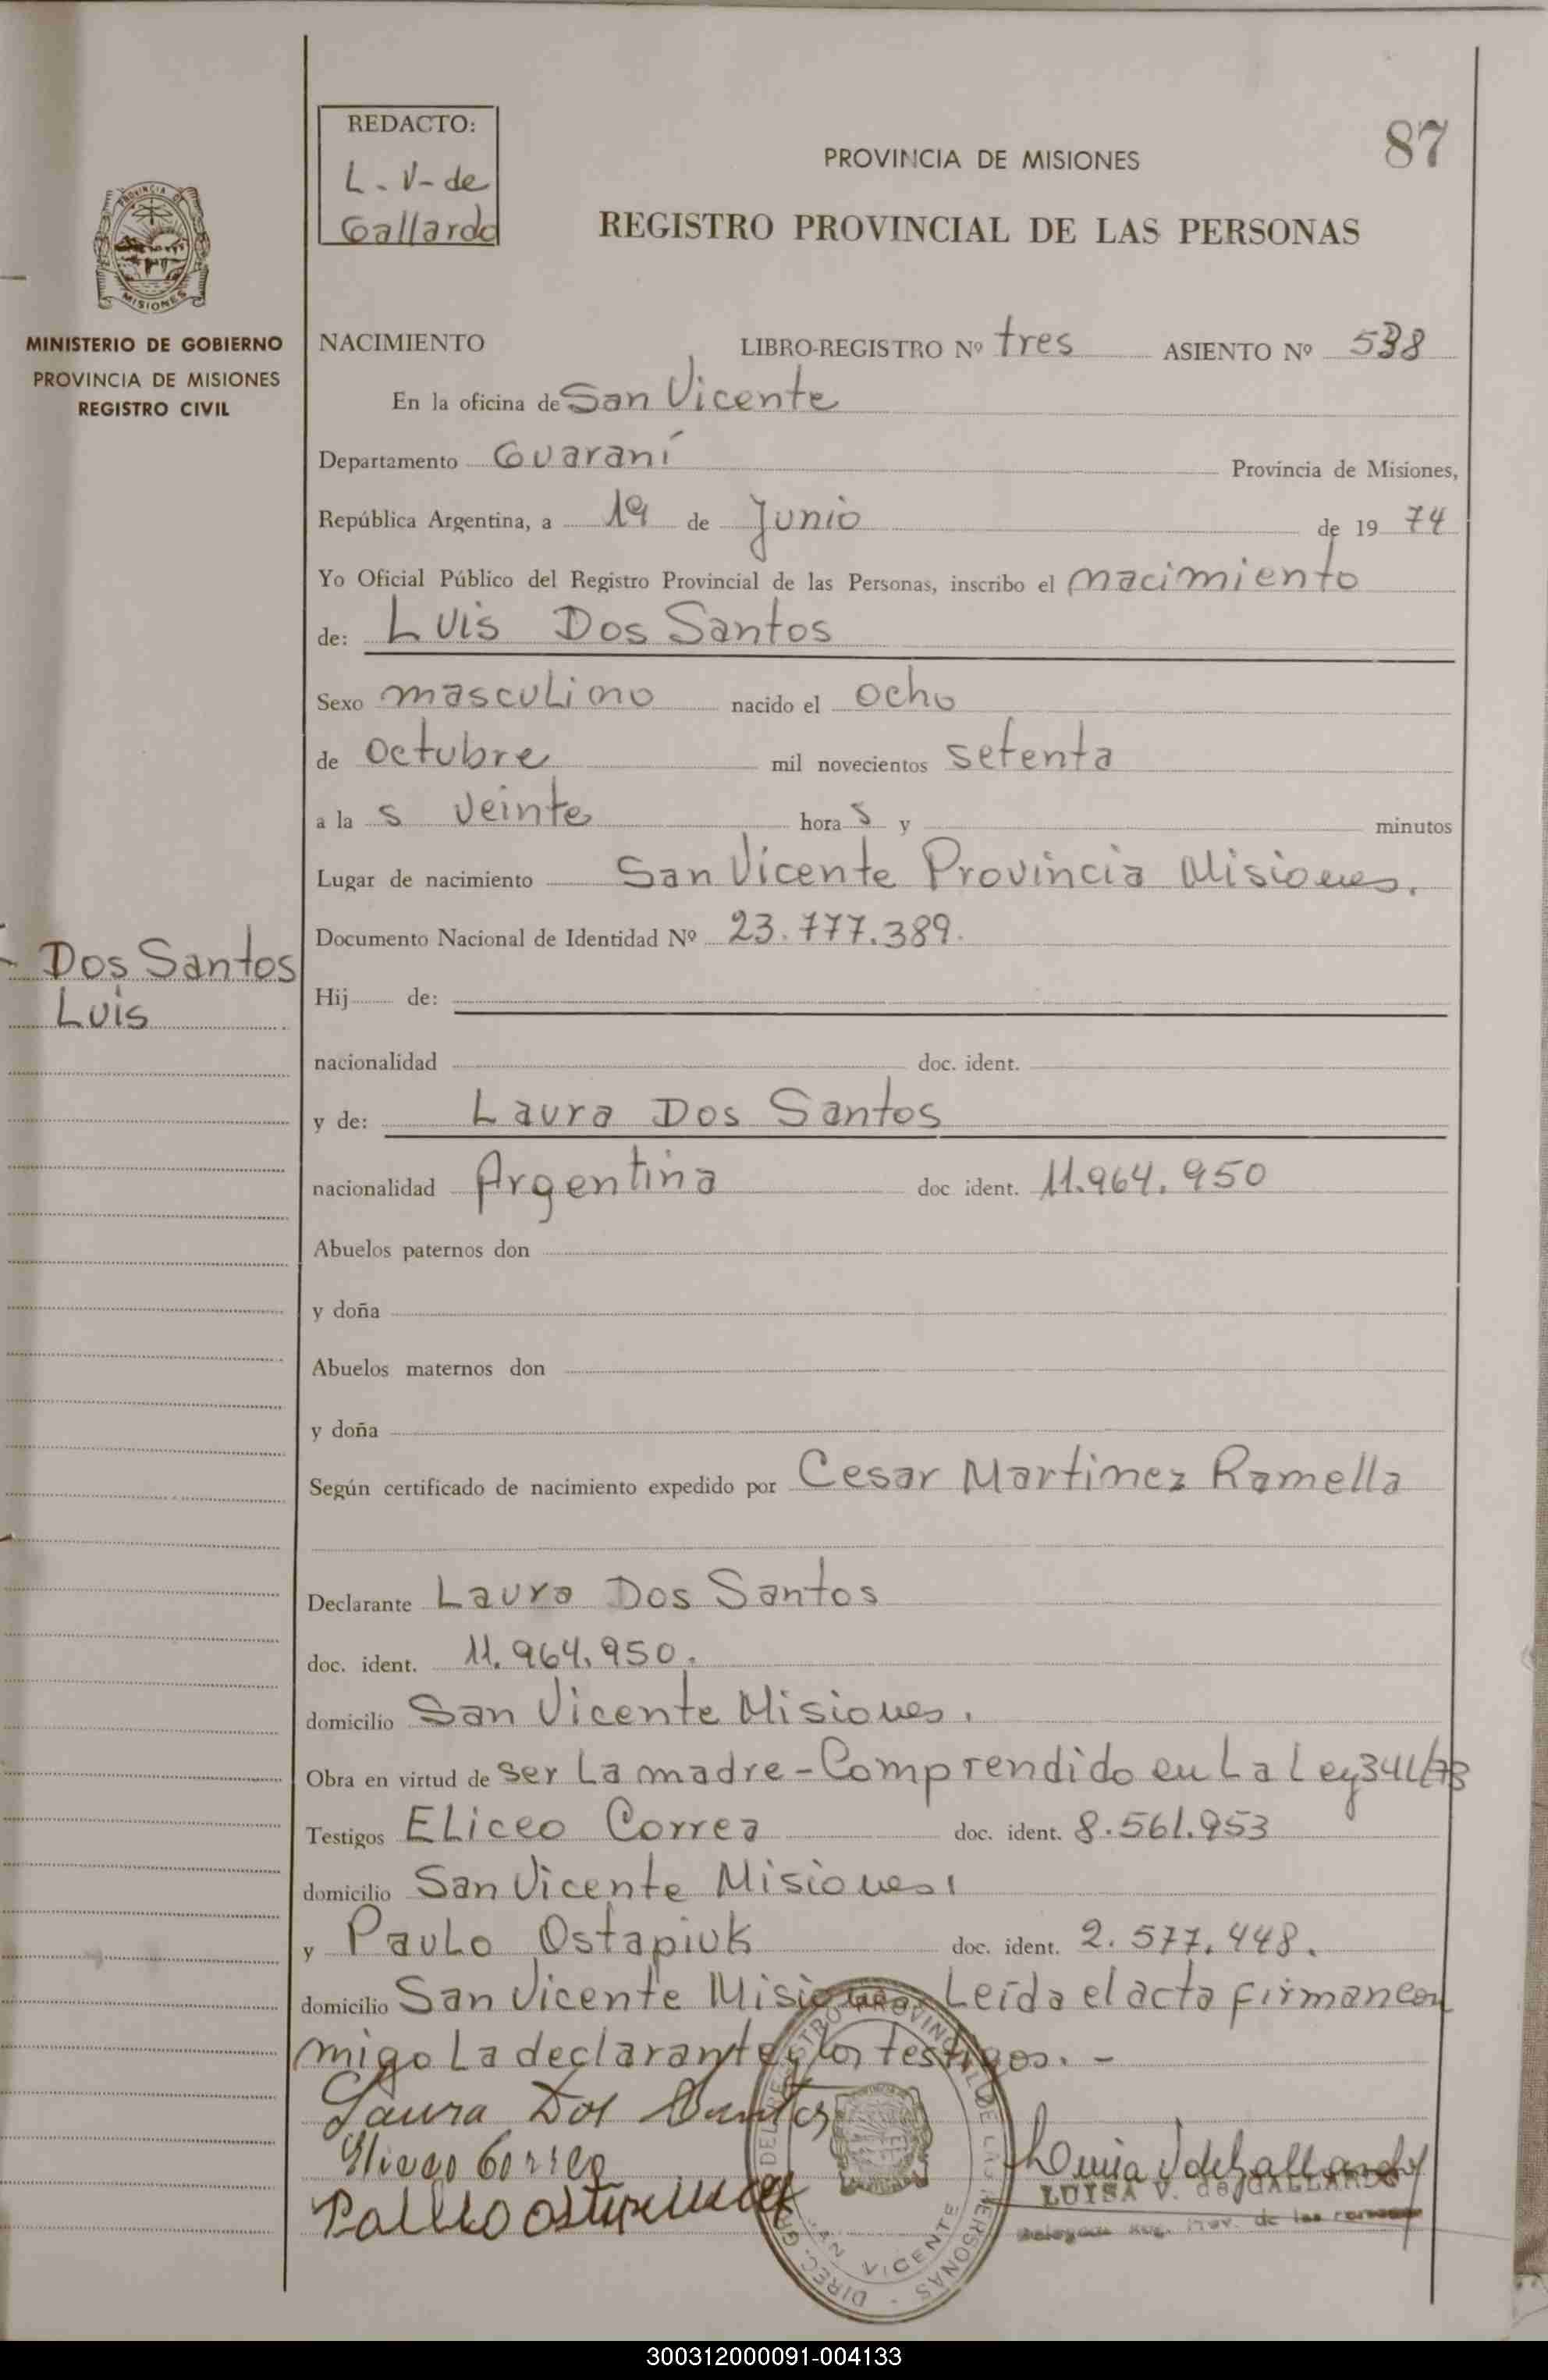 REDACTO:
L. V. de
Gallardo
87
PROVINCIA DE MISIONES
REGISTRO PROVINCIAL DE LAS PERSONAS
PROVINCIA DE
MISIONES
MINISTERIO DE GOBIERNO
PROVINCIA DE MISIONES
REGISTRO CIVIL
NACIMIENTO LIBRO-REGISTRO Nº tres ASIENTO Nº 538
En la oficina de San Vicente
Departamento Guaraní Provincia de Misiones,
República Argentina, a 19 de Junio de 19 74
Yo Oficial Público del Registro Provincial de las Personas, inscribo el nacimiento
de: Luis Dos Santos
Sexo masculino nacido el ocho
de octubre mil novecientos setenta
a la s veinte hora s y minutos
Lugar de nacimiento San Vicente Provincia Misiones.
Documento Nacional de Identidad Nº 23.777.389.
Dos Santos
Luis
Hij de:
nacionalidad doc. ident.
y de: Laura Dos Santos
nacionalidad Argentina doc ident. 11.964.950
Abuelos paternos don
y doña
Abuelos maternos don
y doña
Según certificado de nacimiento expedido por Cesar Martinez Ramella
Declarante Laura Dos Santos
doc. ident. 11.964.950.
domicilio San Vicente Misiones.
Obra en virtud de ser La madre - Comprendido en La Ley
Testigos ELiceo Correa doc. ident. 8.561.953
domicilio San Vicente Misiones
y PauLo Ostapiuk doc. ident. 2.577.448.
domicilio San Vicente Misiones Leída el acta firman con
migo La declarante y los testigos. -
Laura Dos Santos
Eliceo Correa
LUISA V. de GALLARDO
DIREC. GRAL. DEL REGISTRO PROVINCIAL DE LAS PERSONAS
SAN VICENTE
300312000091-004133